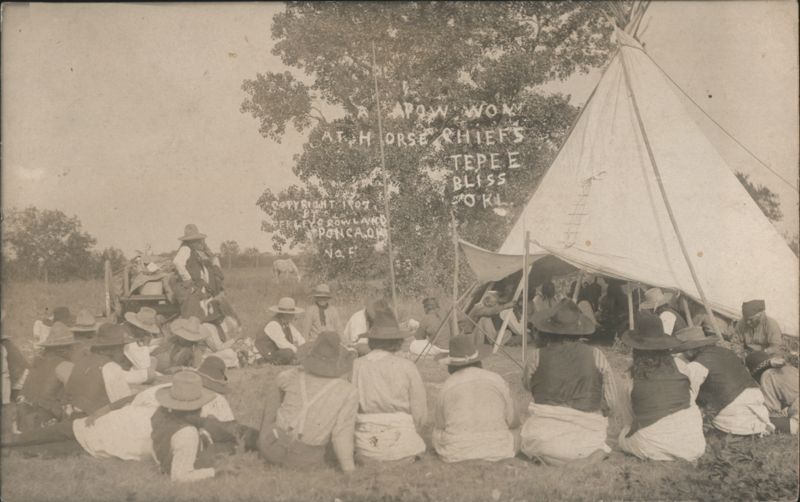 A POW WOW
AT HORSE CHIEFS
TEPEE
BLISS
OKL.
COPYRIGHT 1907
BY
ROWLAND
PONCA, OK